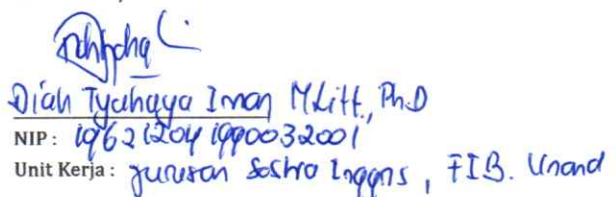 Diah Tyahaya Iman M.Litt., Ph.D
NIP : 196212041990032001
Unit Kerja : Jurusan Sastra Inggris , FIB. Unand